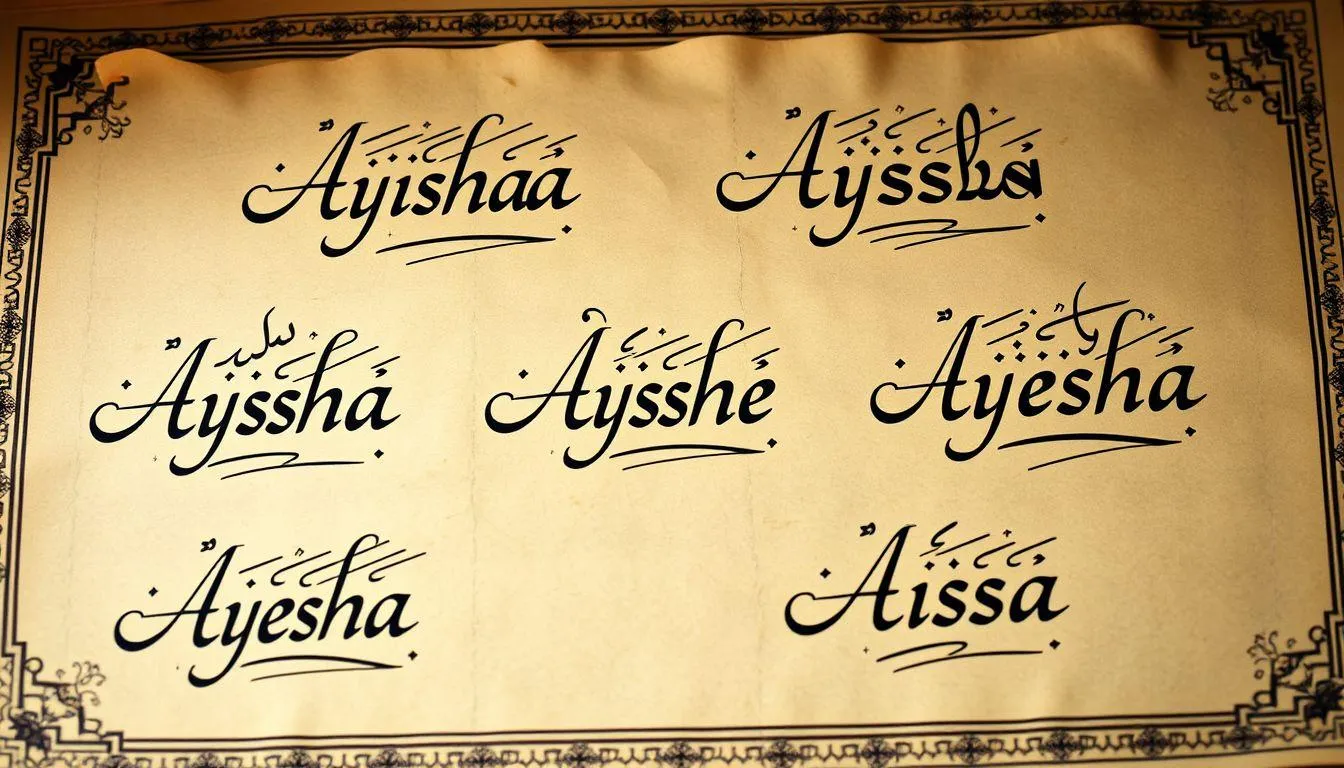 Ayishaa
Ayssha
Aysshe
Ayesha
Ayesha
Aissa